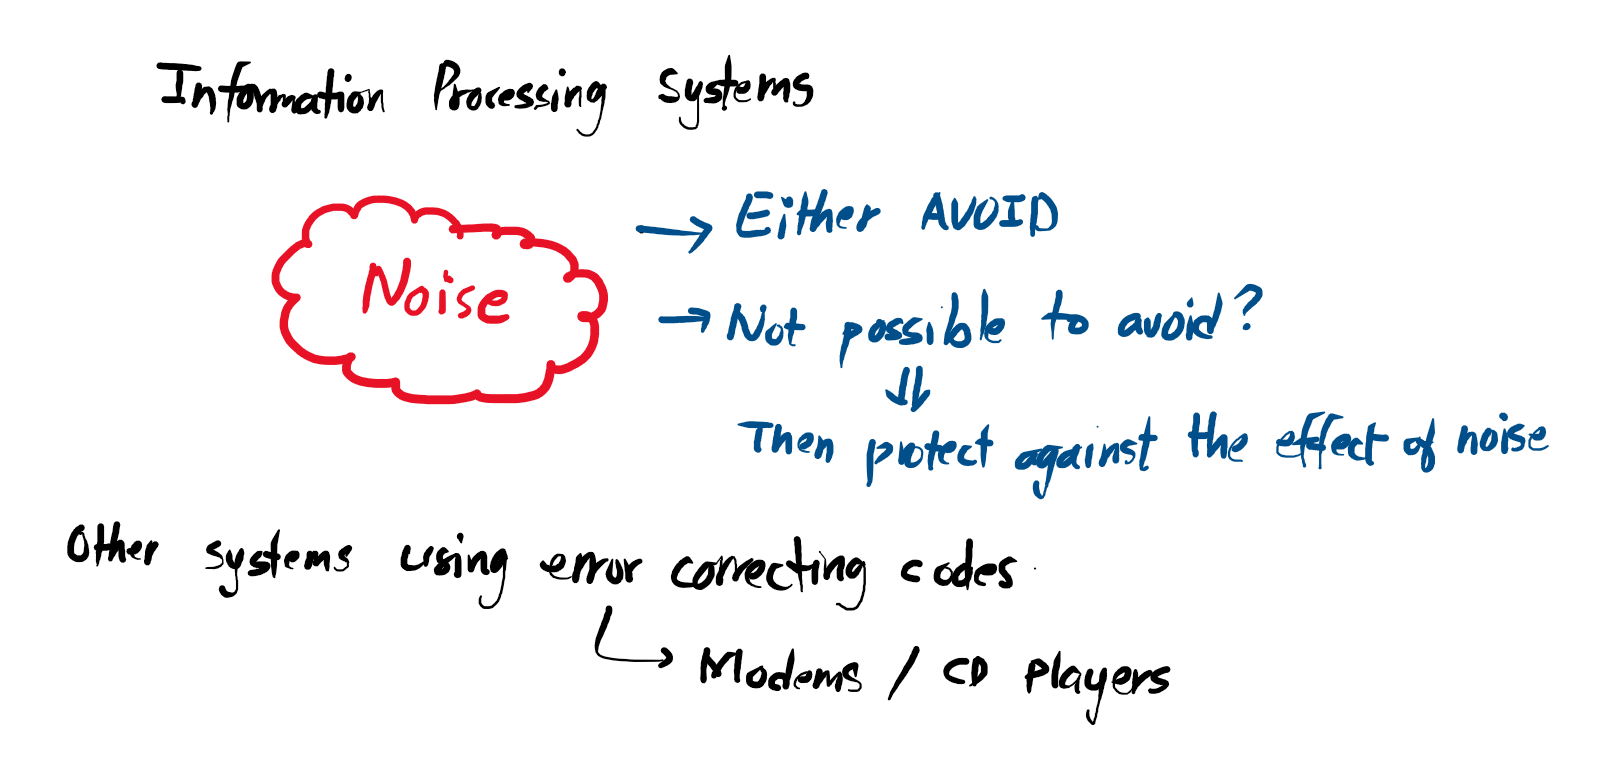 Information Processing Systems
Noise
→ Either AVOID
→ Not possible to avoid?
⇓
Then protect against the effect of noise
Other systems using error correcting codes
↳ Modems / CD Players